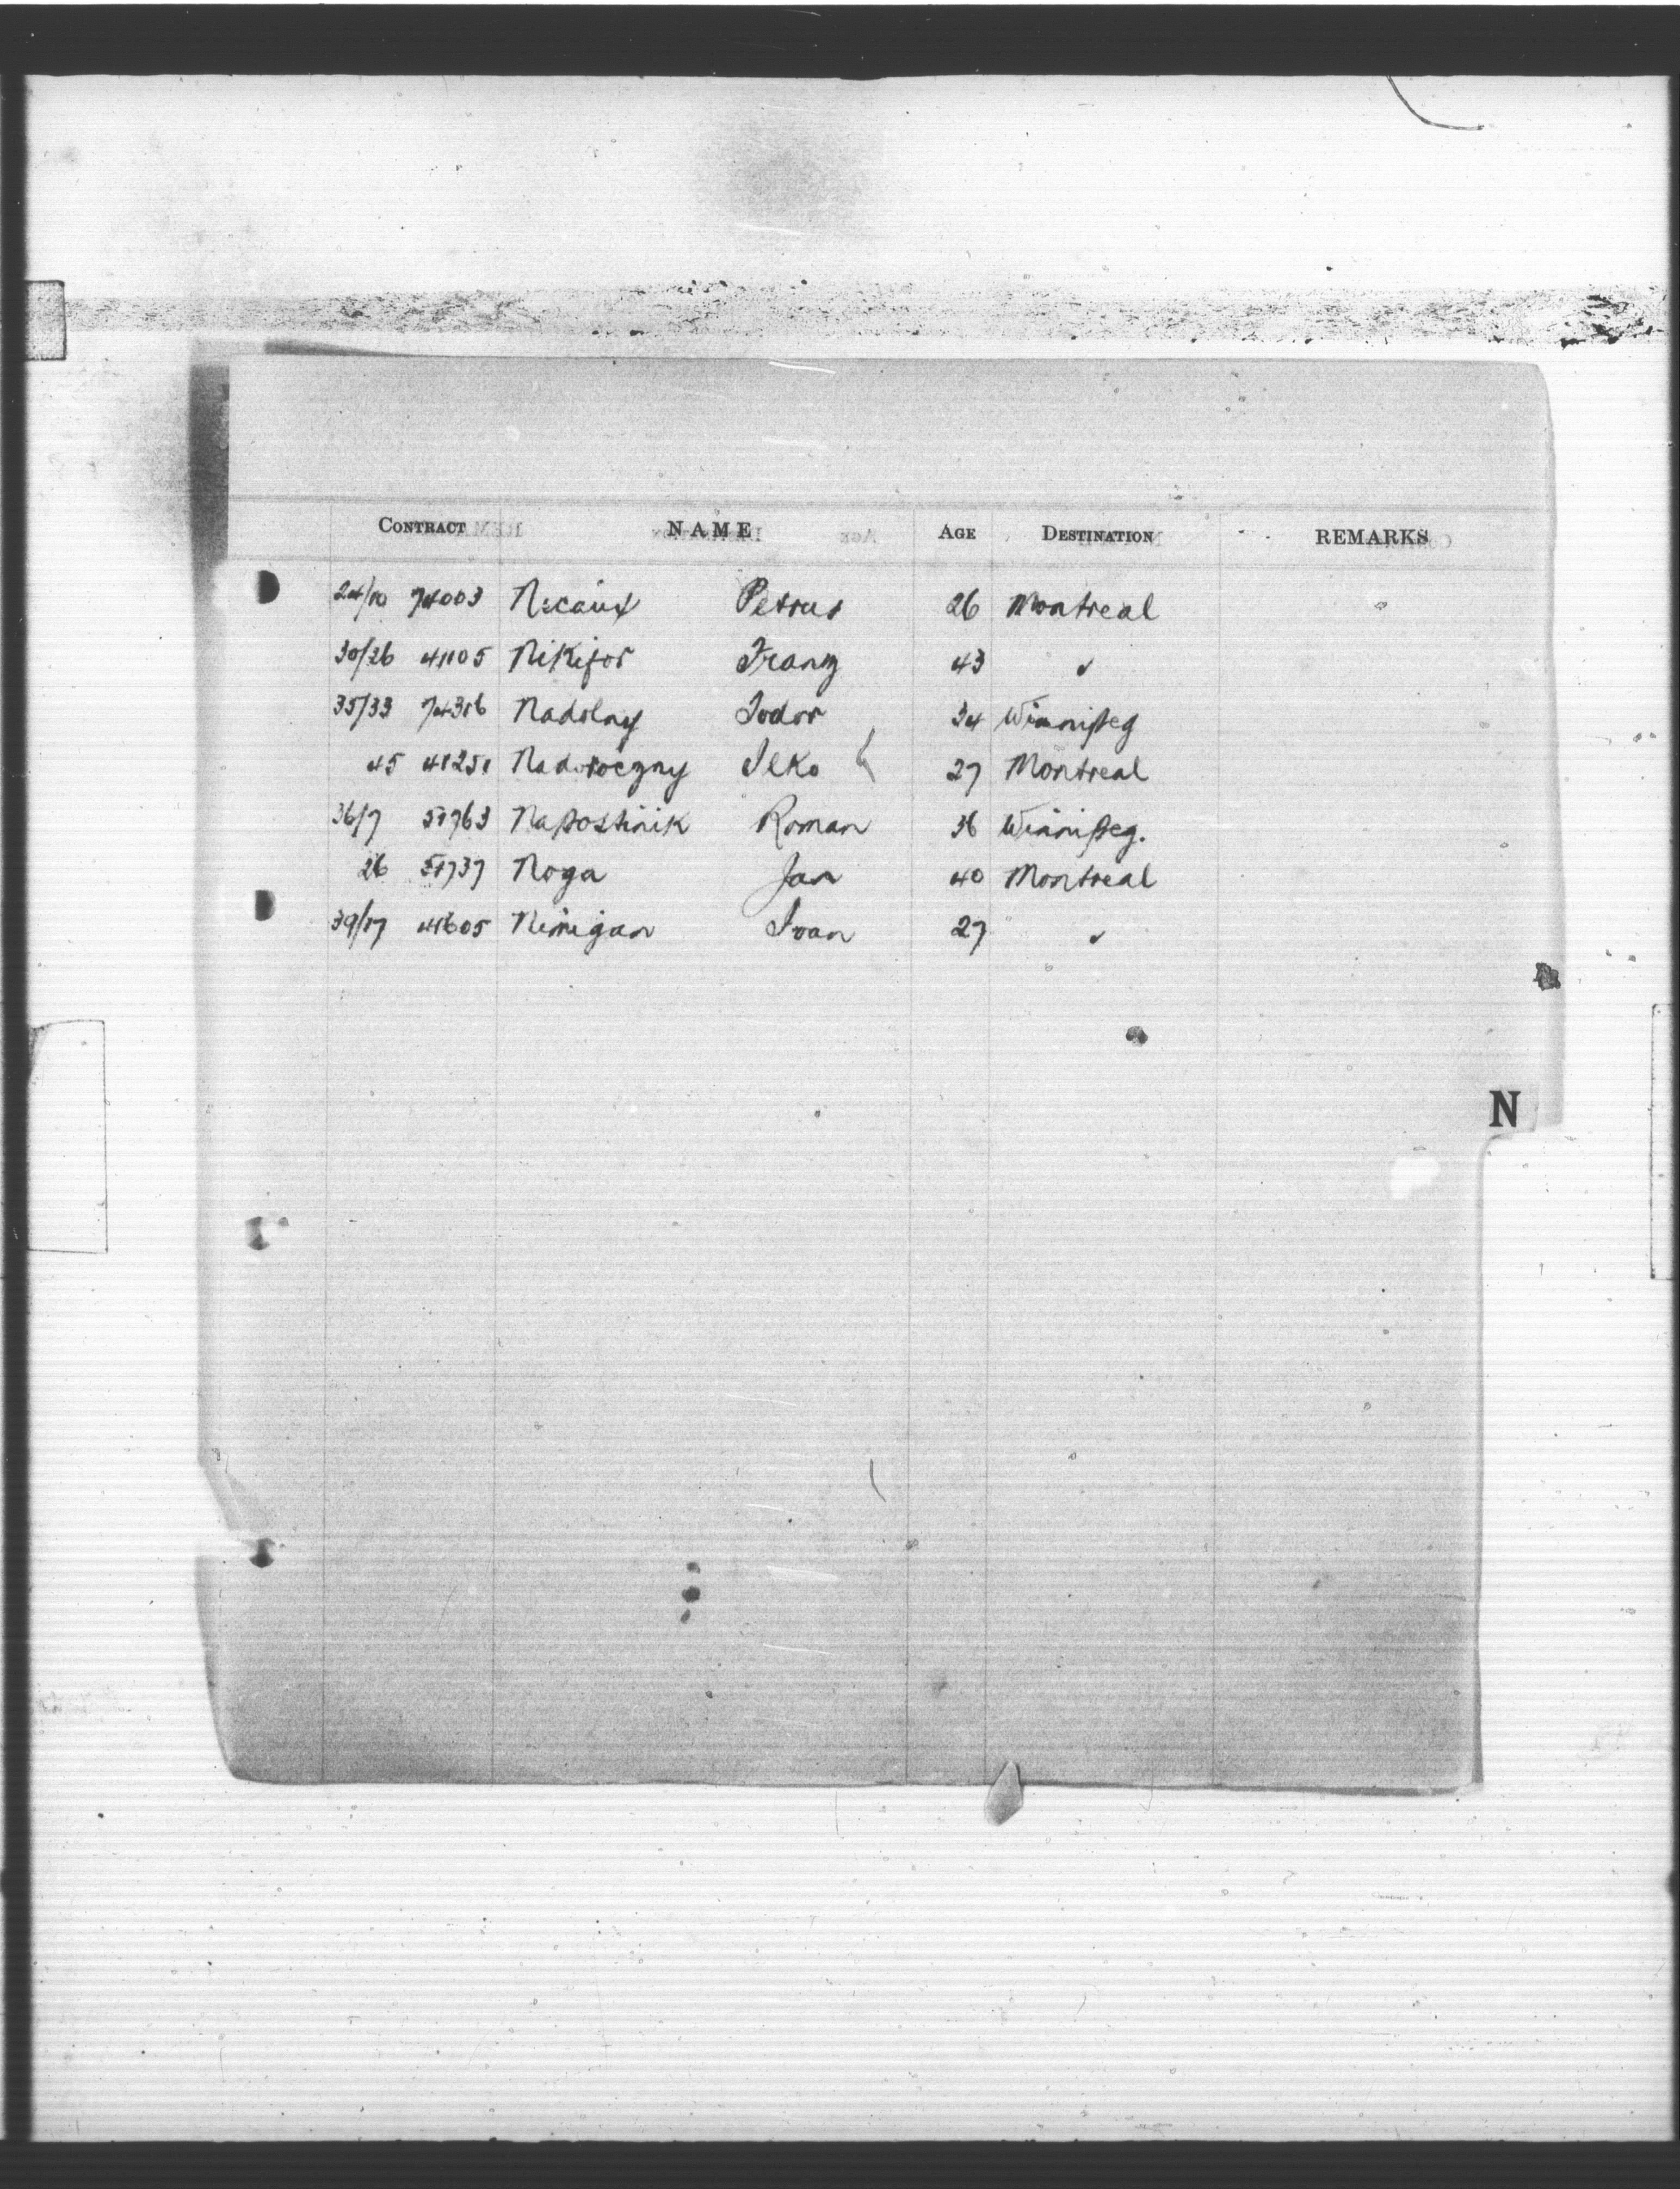 CONTRACT NAME AGE DESTINATION REMARKS
24/10 74003 Petrus 26 Montreal
30/26 41105 Nikifor Franz 43 ✓
35/33 74316 Nadolny Todor 34 Winnipeg
45 41251 Nadoroczny Ilko 27 Montreal
36/7 51763 Napostinik Roman 36 Winnipeg.
26 51737 Noga Jan 40 Montreal
39/17 41605 Nimigan Ivan 27 ✓
N